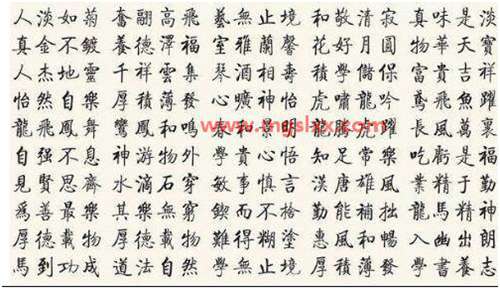 人淡如菊 奮翮高飛 藝無止境 和敬清寂 真味是淡
真金不鍍 養德澤福 室雅蘭馨 花好月圓 物華天寶
人杰地靈 千祥雲集 琴酒相壽 積學儲保 富貴吉祥
怡然自樂 厚積薄發 心曠神怡 虎嘯龍吟 鳶飛魚躍
龍飛鳳舞 鸞鳳和鳴 春和景 龍虎躍 長風萬裏
自强不息 神游物外 學貴心悟 知足常樂 吃虧是福
見賢思齊 水滴石穿 敏事慎言 漢唐雄風 業精于勤
爲善最樂 其樂無窮 鍥而不捨 勤能補拙 龍馬精神
厚德載物 厚德載物 難得糊塗 惠風和暢 入幽出朗
馬到功成 道法自然 學無止境 厚積薄發 學書養志